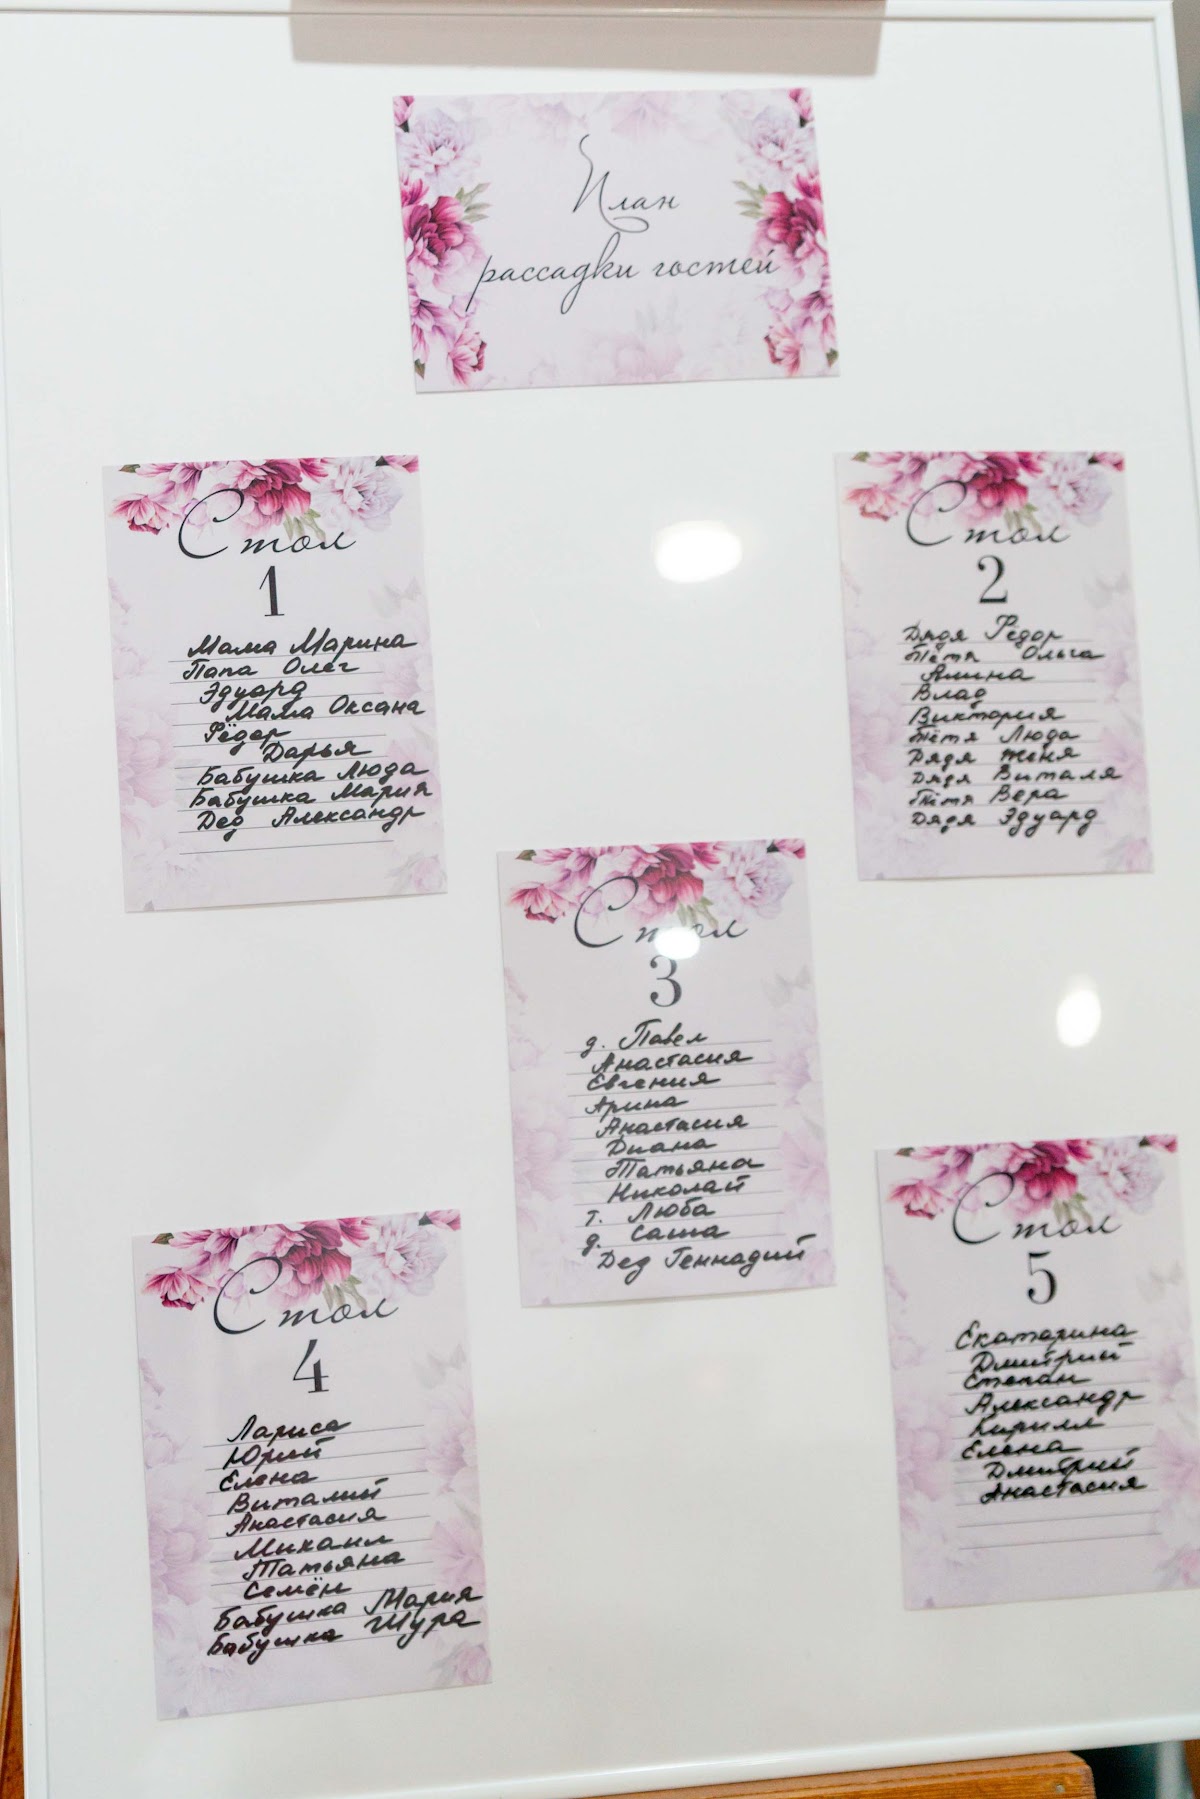 План
рассадки гостей
Стол
1
Мама Марина
Папа Олег
Эдуард
Мама Оксана
Фёдор
Дарья
Бабушка Люда
Бабушка Мария
Дед Александр
Стол
2
Дядя Фёдор
Тётя Ольга
Амина
Влад
Виктория
Тётя Люда
Дядя Женя
Дядя Виталя
Тётя Вера
Дядя Эдуард
Стол
3
д. Павел
Анастасия
Евгения
Арина
Анастасия
Диана
Татьяна
Николай
т. Люба
д. Саша
Дед Геннадий
Стол
4
Лариса
Юрий
Елена
Виталий
Анастасия
Михаил
Татьяна
Семён
Бабушка Мария
Бабушка Шура
Стол
5
Екатарина
Дмитрий
Степан
Александр
Кирилл
Елена
Дмитрий
Анастасия